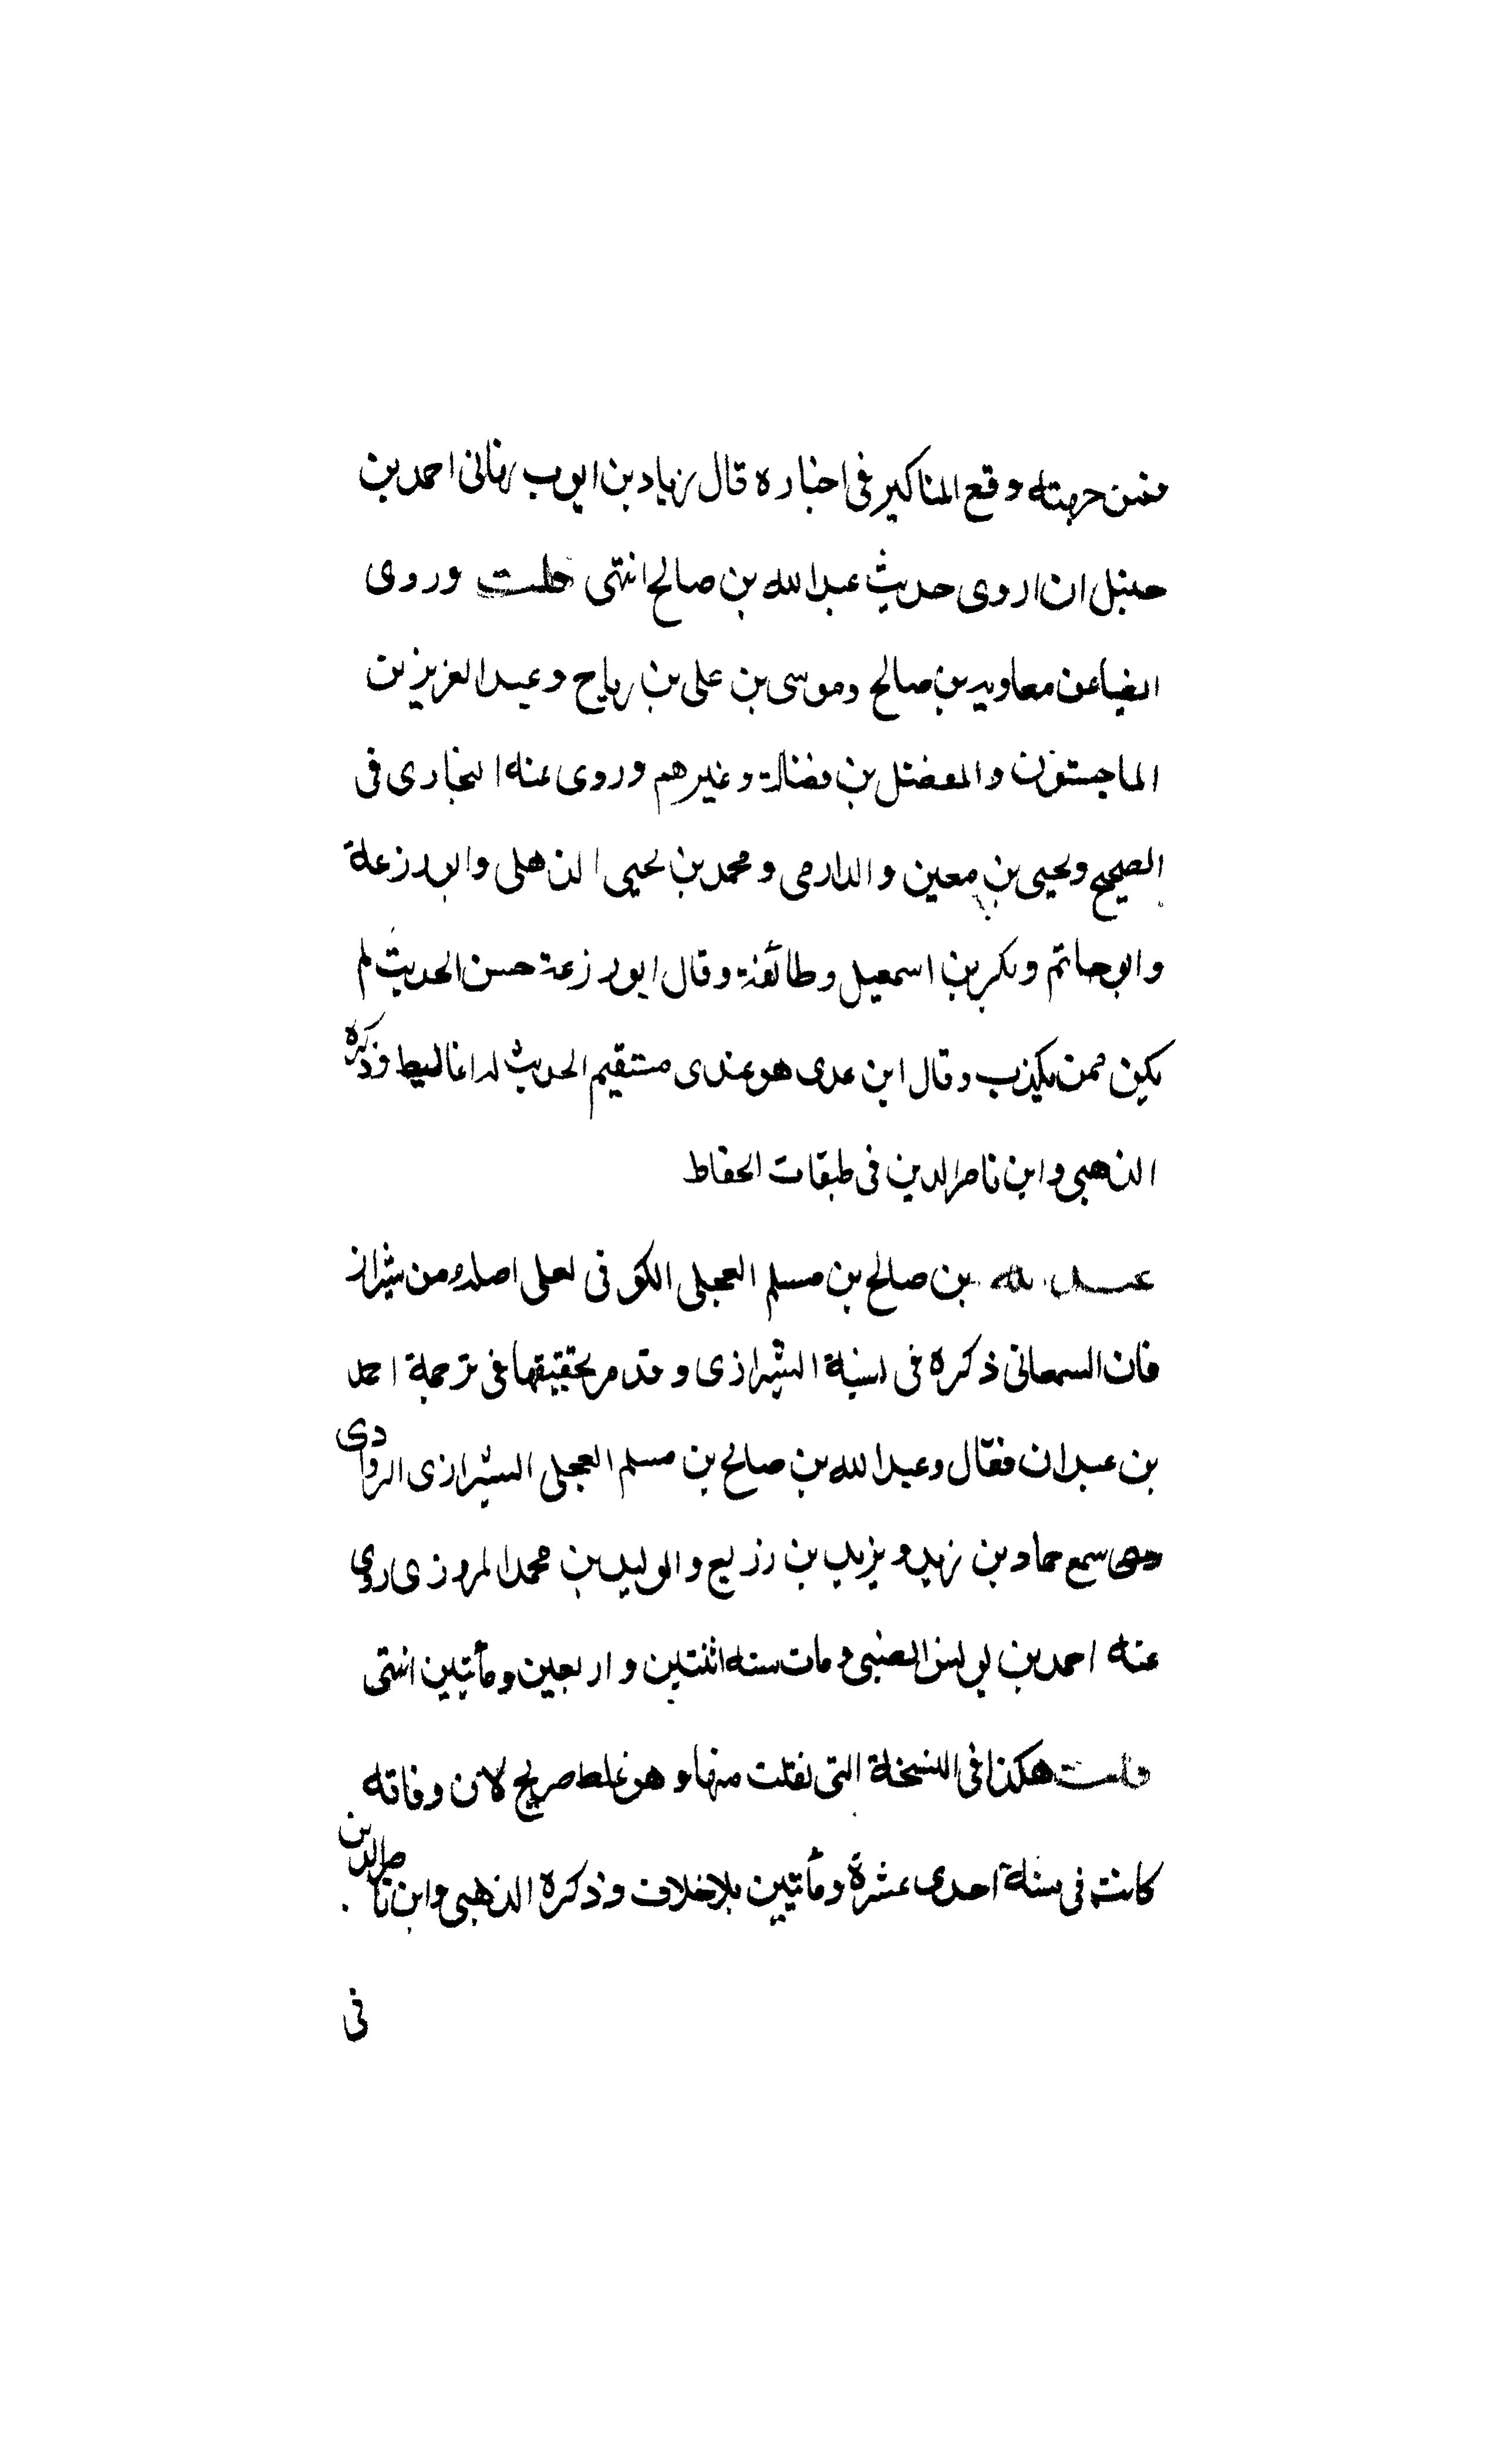 فمن جهته وقع المناكير فى اخباره قال زياد بن ايوب نهانى احمد بن
حنبل ان اروى حديث عبد الله بن صالح انتهى قلت وروى
ايضا عن معاويه بن صالح وموسى بن على بن رباح وعبد العزيز بن
الماجشون والمفضل بن فضالة وغيرهم وروى عنه البخارى فى
الصحيح ويحيى بن معين والدارمى ومحمد بن يحيى الذهلى وابو زرعة
وابو حاتم وبكر بن اسمعيل وطائفة وقال ابو زرعة حسن الحديث لم
يكن ممن يكذب وقال ابن عدى هو عندى مستقيم الحديث له اغاليط وذكره
الذهبى وابن ناصر الدين فى طبقات الحفاظ
عبد الله بن صالح بن مسلم العجلى الكوفى لعلى اصله من شيراز
فان السمعانى ذكره فى نسبة الشيرازى وقد مر تحقيقها فى ترجمة احمد
بن عبدان فقال وعبد الله بن صالح بن مسلم العجلى الشيرازى الروادى
سمع حماد بن زيد ويزيد بن زريع والوليد بن محمد المروزى روى
عنه احمد بن يونس الضبى ومات سنه اثنتين واربعين ومأتيين انتهى
قلت هكذا فى النسخة التى نقلت منها وهو غلط صريح لان وفاته
كانت فى سنة احدى عشرة ومأتيين بلاخلاف وذكره الذهبى وابن ناصر الدين
فى